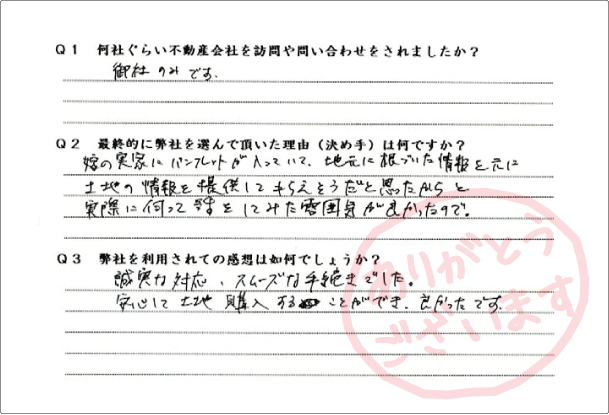 Q1 何社ぐらい不動産会社を訪問や問い合わせをされましたか?
御社のみです.
Q2 最終的に弊社を選んで頂いた理由(決め手)は何ですか?
嫁の実家にパンフレットが入っていて、地元に根づいた情報を元に
土地の情報を提供してもらえそうだと思ったからと
実際に伺って話をしてみた雰囲気が良かったので。
Q3 弊社を利用されての感想は如何でしょうか?
誠実な対応、スムーズな手続きでした。
安心して土地購入することができ、良かったです
ありがとう
ございます